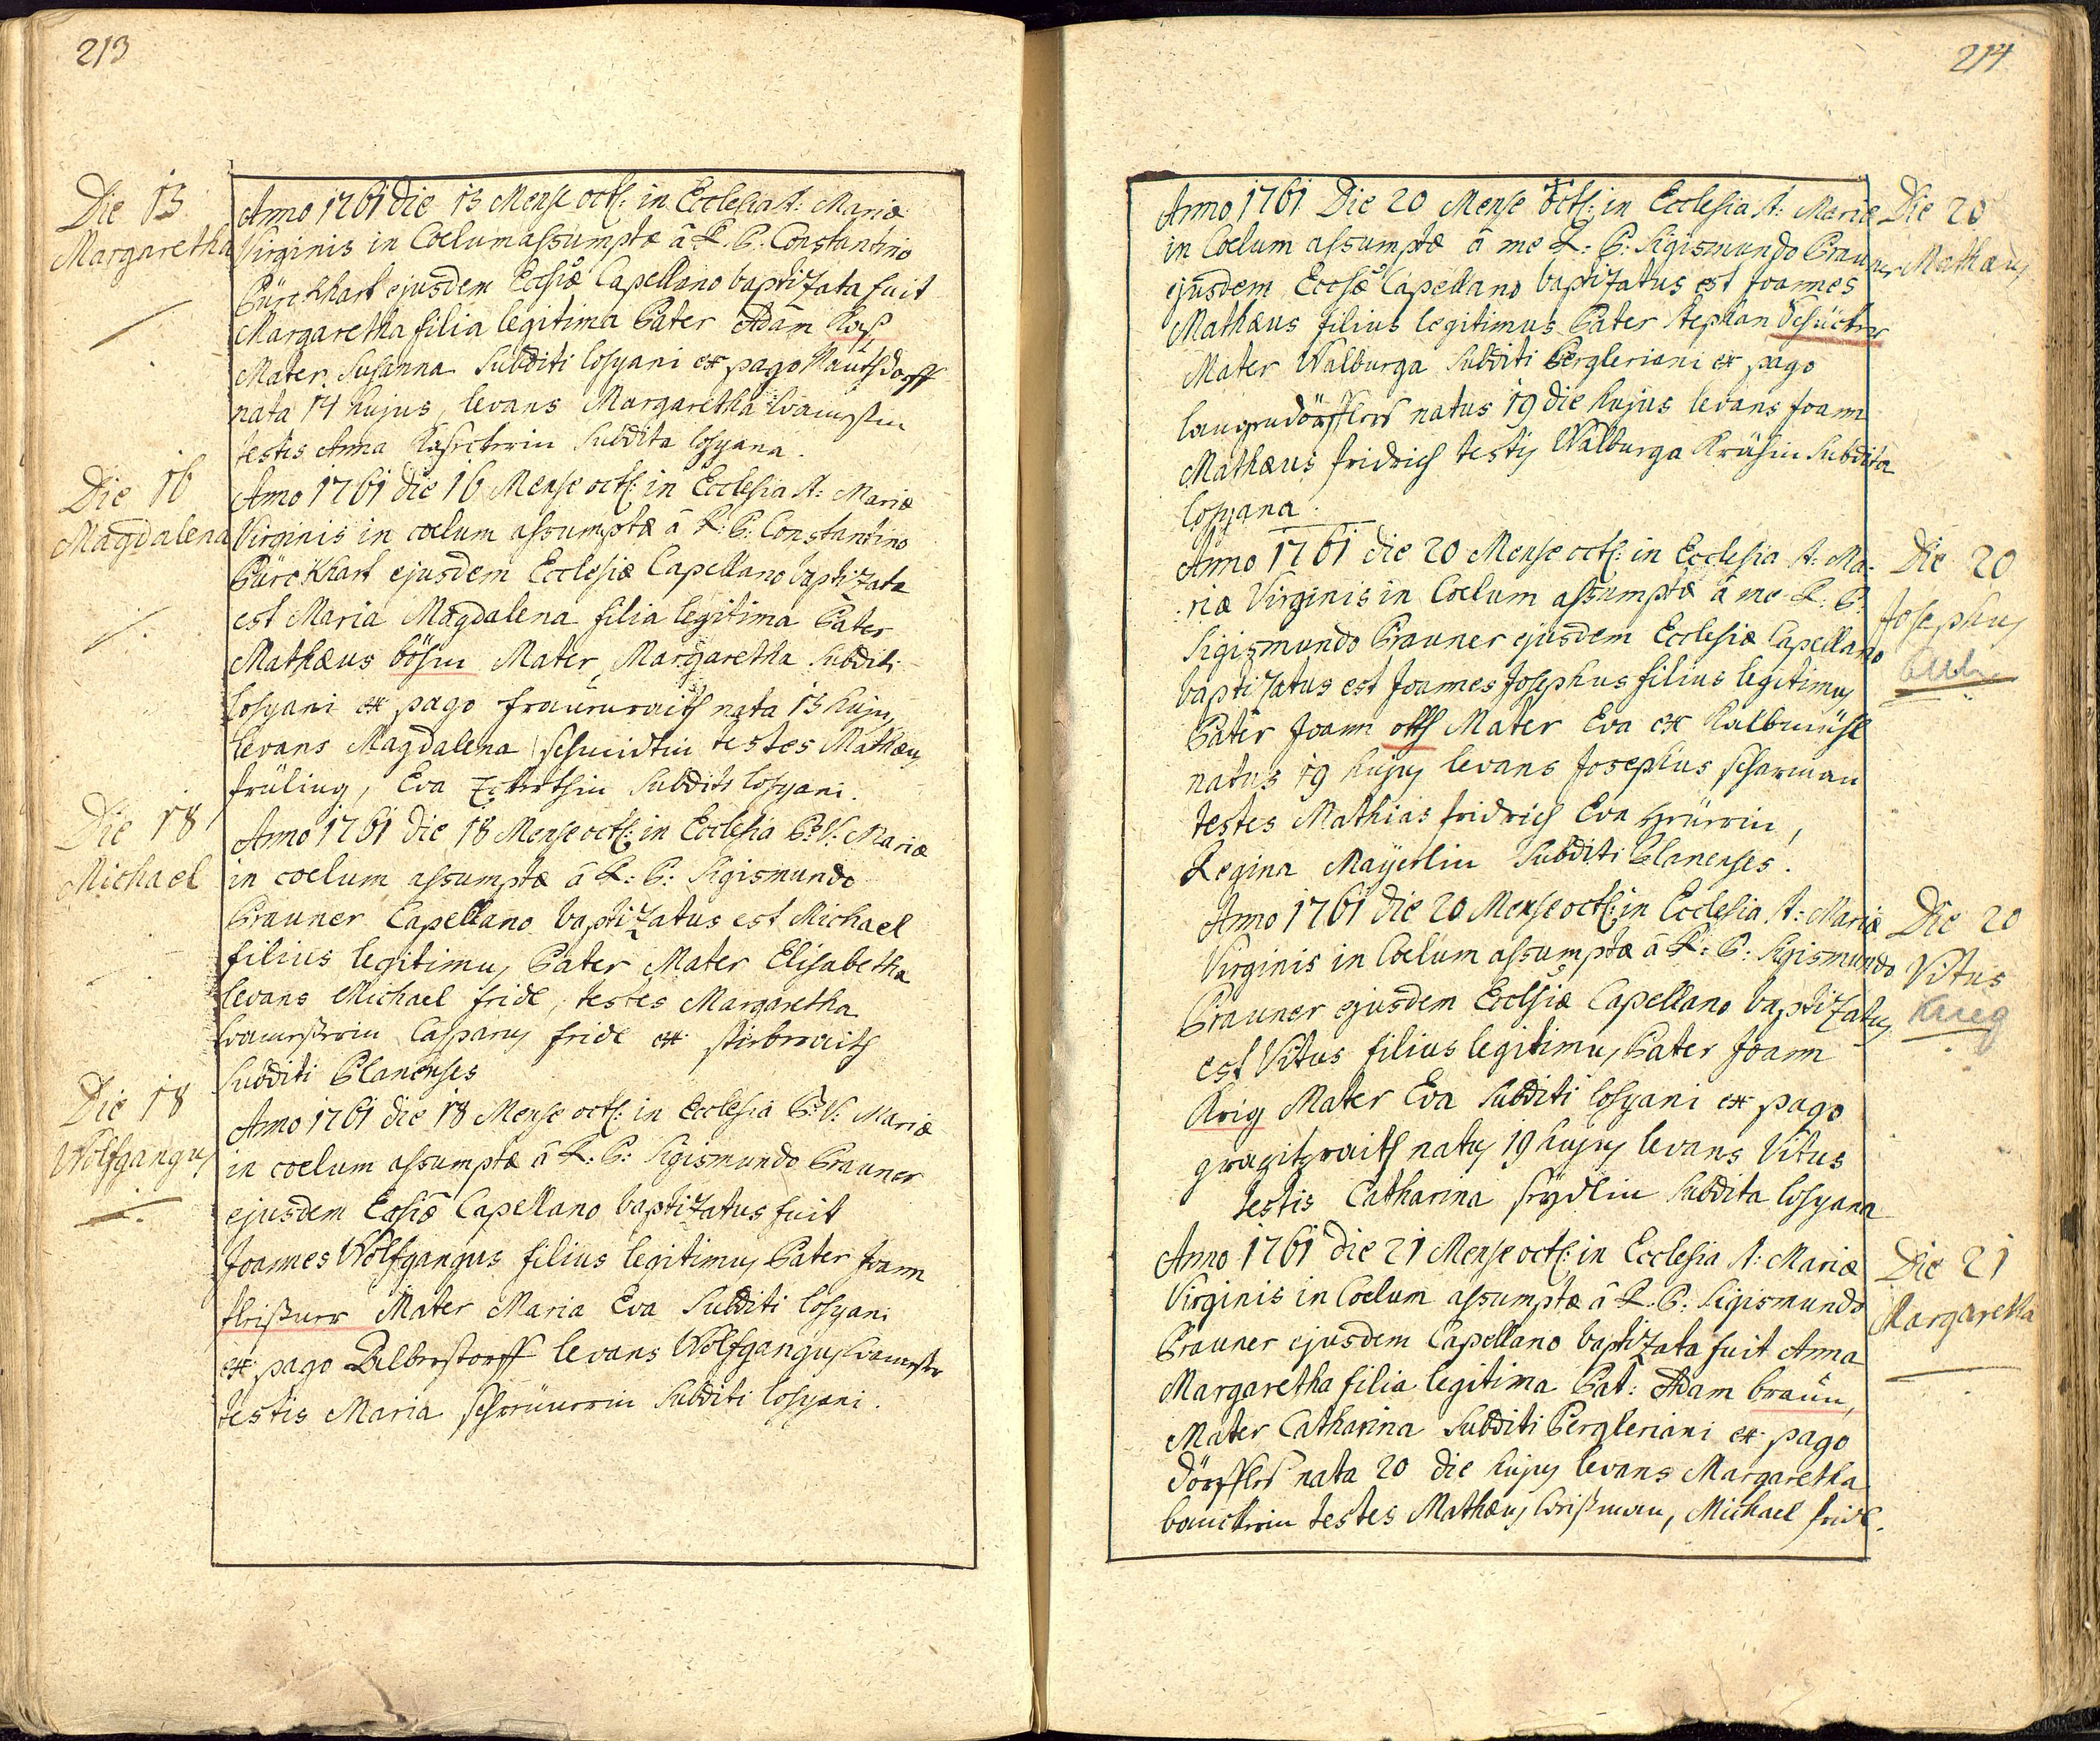 213
Die 13
Margaretha
Anno 1761 die 13 Mense octb: in Ecclesia A: Mariæ
Virginis in Coelum assumptæ â R. P. Constantino
Pürckhart ejusdem Eccsiæ Capellano baptizata fuit
Margaretha filia legitima Pater Adam
Mater Susanna Subditi losyani ex pago
nata 14 hujus, levans Margaretha
testis Anna subdita losyana.
Die 16
Magdalena
Anno 1761 die 16 Mense octb: in Ecclesia A: Mariæ
Virginis in coelum assumptæ â R: P: Constantino
Pürckhart ejusdem Ecclesiæ Capellano baptizata
est Maria Magdalena filia legitima Pater
Mathæus böhm Mater Margaretha Subditi
losyani ex pago nata 15 hujus
levans Magdalena schmidtin testes Mathæus
früling, Eva Subditi losyani.
Die 18
Michael
Anno 1761 die 18 Mense octb: in Ecclesia B: V: Mariæ
in coelum assumptæ â R: P: Sigismundo
Prauner Capellano baptizatus est Michael
filius legitimus Pater Mater Elisabetha
levans Michael fridl, testes Margaretha
Casparus fridl ex
subditi Planenses
Die 18
Wolfgangus
Anno 1761 die 18 Mense octb: in Ecclesia B: V: Mariæ
in coelum assumptæ â R: P: Sigismundo Prauner
ejusdem Ecsiæ Capellano baptizatus fuit
Joannes Wolfgangus filius legitimus Pater Joann
fleißner Mater Maria Eva Subditi losyani
ex pago levans Wolfgangus
testis Maria Subditi losyani.
214
Anno 1761 Die 20 Mense octb: in Ecclesia A: Mariæ
Die 20
in Coelum assumptæ â me R: P: Sigismundo Prauner
Mathæus
ejusdem Eccsæ Capellano baptizatus est Joannes
Mathæus filius legitimus Pater Stephan
Mater Walburga Subditi Pergleriani ex pago
natus 19 die hujus levans Joann
Mathæus fridrich testis Walburga Subdita
losyana.
Anno 1761 die 20 Mense octb: in Ecclesia A: Ma-
Die 20
:riæ Virginis in Coelum assumptæ â me R: P:
Josephus
Sigismundo Prauner ejusdem Ecclesiæ Capellano
baptizatus est Joannes Josephus filius legitimus
Pater Joann otth Mater Eva ex Kalbmühl
natus 19 hujus levans Josephus scharman
testes Mathias fridrich Eva
Regina Mayerlin Subditi Planenses.
Anno 1761 die 20 Mense octb: in Ecclesia A: Mariæ
Die 20
Virginis in Coelum assumptæ â R: P: Sigismundo
Vitus
Prauner ejusdem Ecclsiæ Capellano baptizatus
Krieg
est Vitus filius legitimus Pater Joann
Krig Mater Eva Subditi losyani ex pago
natus 19 hujus levans Vitus
testis Catharina Subdita losyana
Anno 1761 die 21 Mense octb: in Ecclesia A: Mariæ
Die 21
Virginis in Coelum assumptæ â R: P: Sigismundo
Margaretha
Prauner ejusdem Capellano baptizata fuit Anna
Margaretha filia legitima Pat: Adam braun,
Mater Catharina Subditi Pergleriani ex pago
nata 20 die hujus levans Margaretha
testes Mathæus Michael fridl.